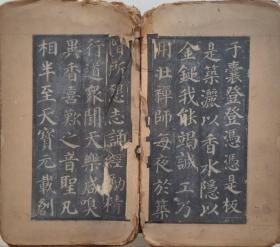 于囊登登憑憑是板
是築灑以香水隱以
金鎚我能竭誠工乃
用壯禪師每夜於築
階所懇志誦經勵精
行道衆聞天樂咸嗅
異香喜歎之音聖凡
相半至天寶元載創